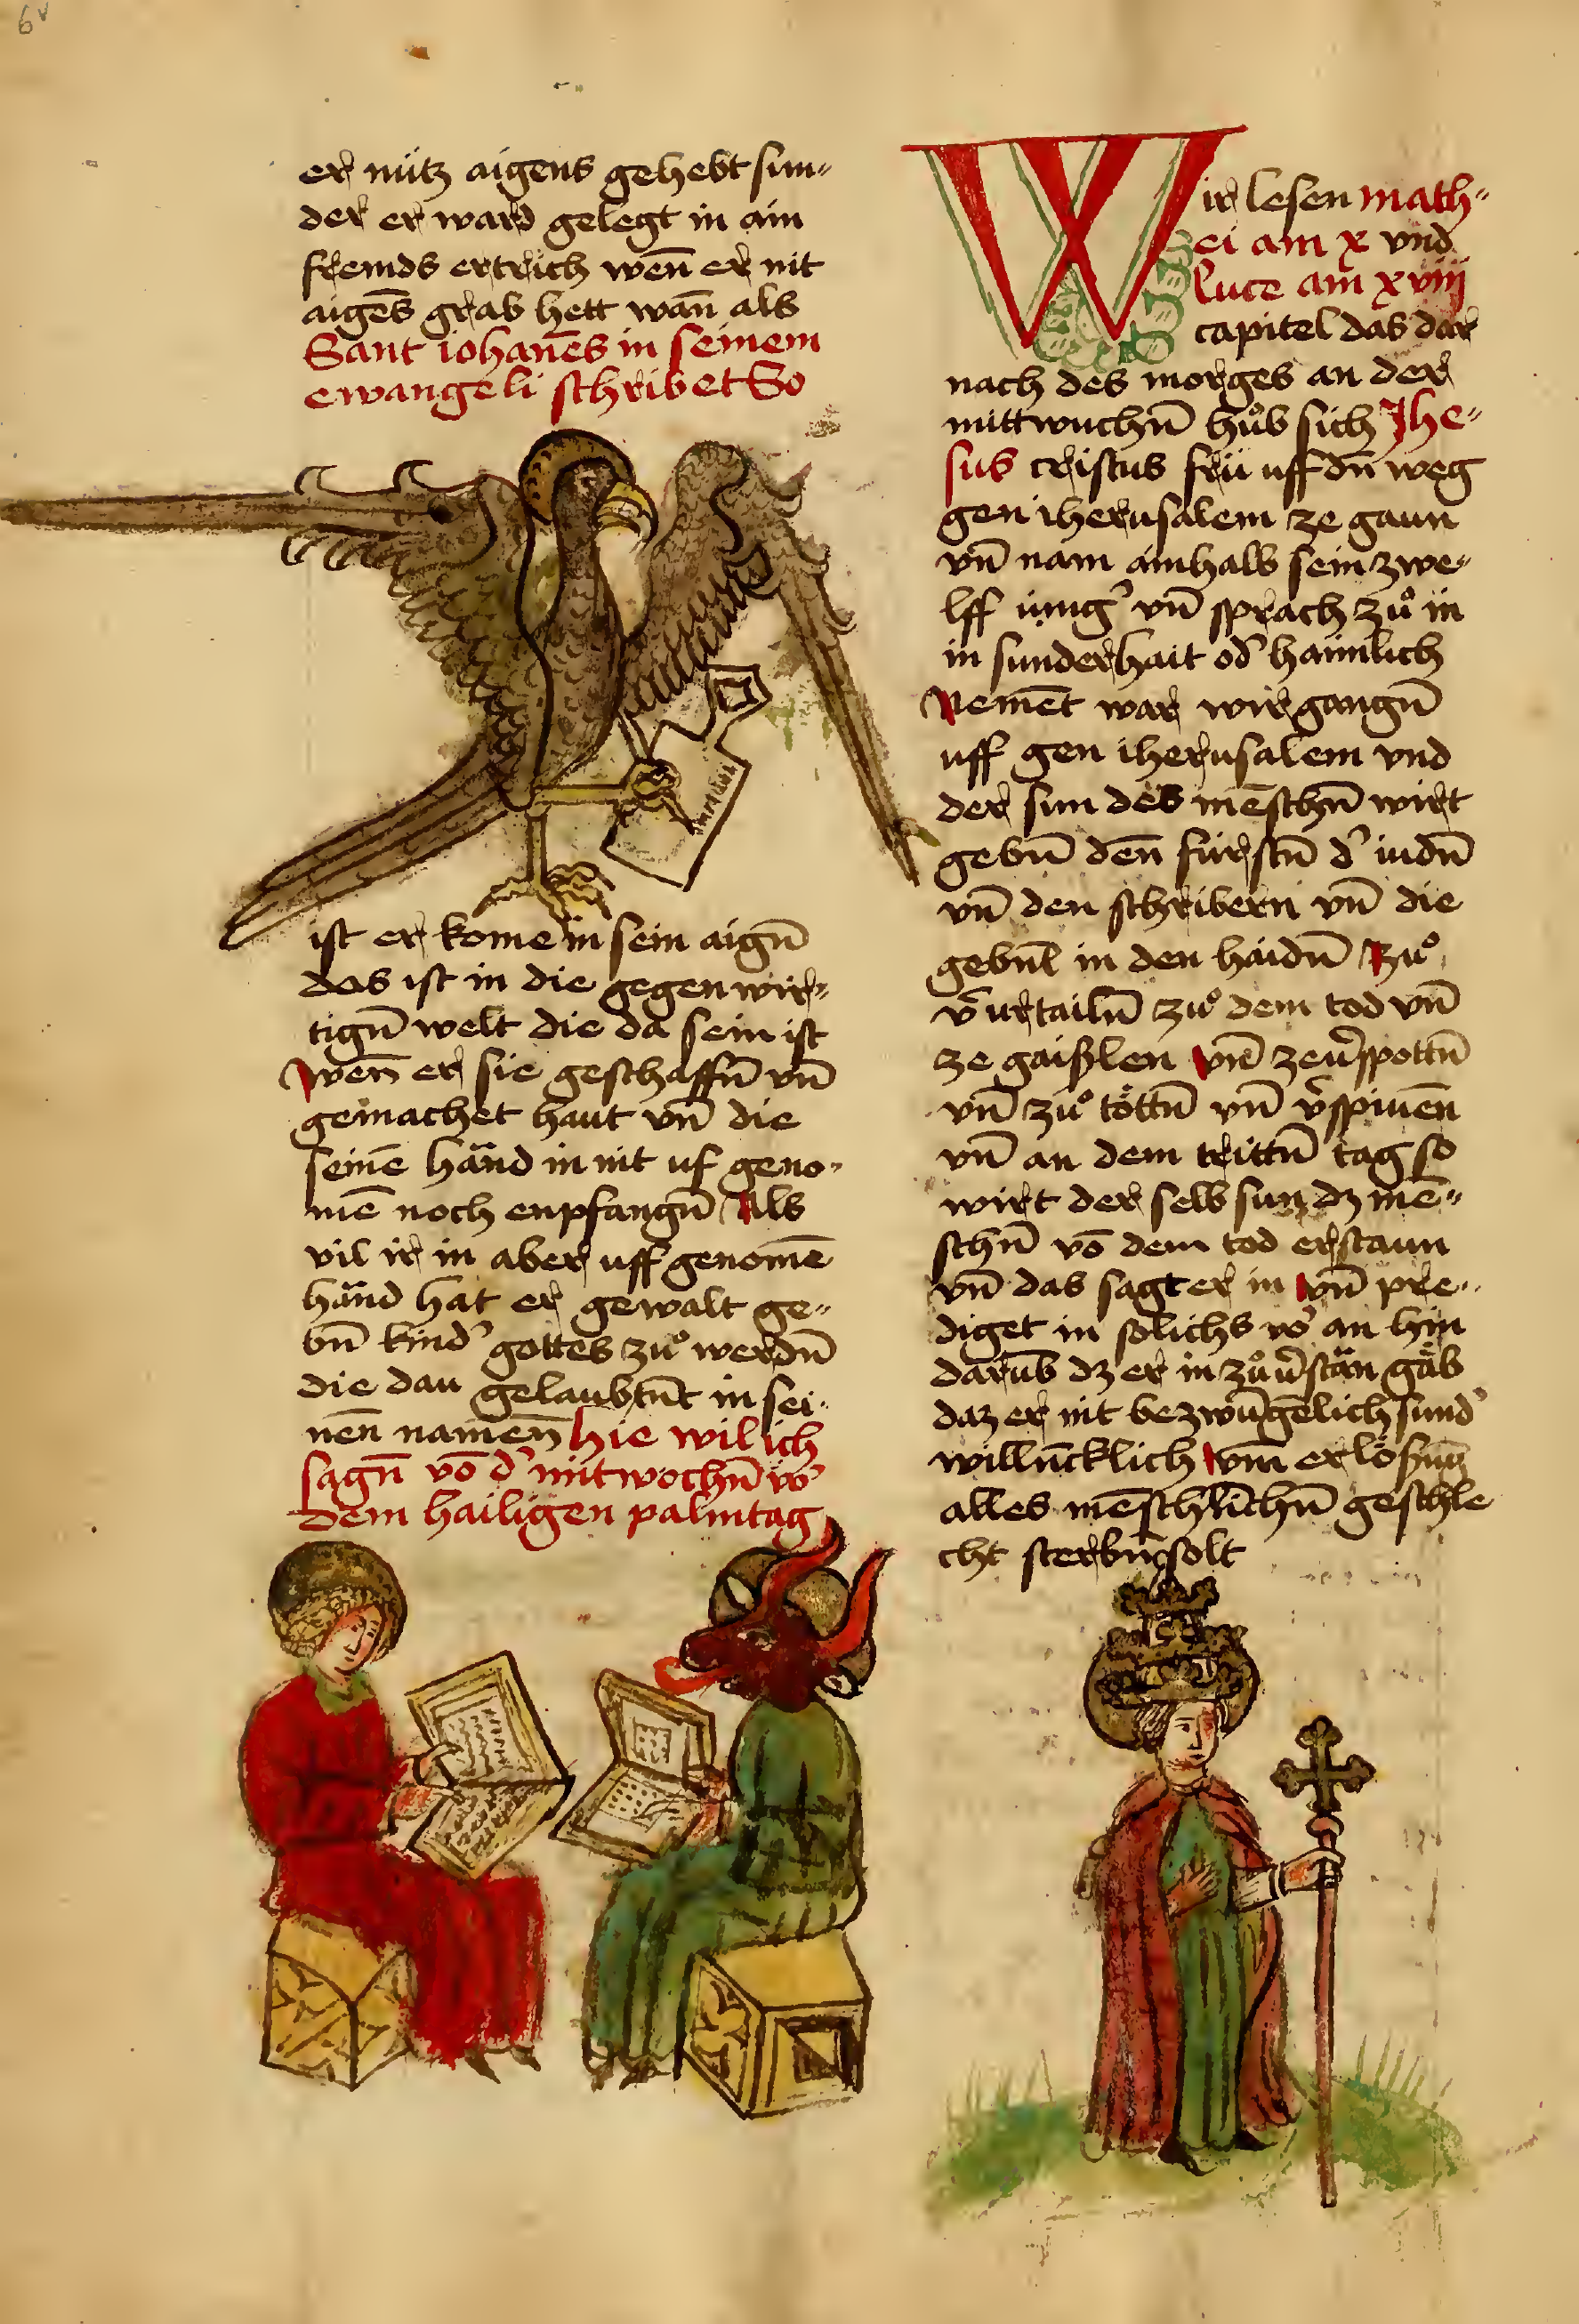 6v
er nütz aigens gehebt sun„
der er ward gelegt in ain
fremds ertrich wen̄ er nit
aigēs grab hett wan̄ als
Sant iohanēs in seinem
ewangeli schribet So
ist er kome in sein aign̄
das ist in die gegenwir„
tign̄ welt die da sein ist
wen̄ er sie geschaffn̄ vn̄
gemachet haut vn̄ die
seinē händ in nit uf geno„
mē noch enpfangn̄ Als
vil ir in aber uff genomē
händ hat er gewalt ge„
bn̄ kind' gottes zuͦ werdn̄
die dau gelaubtn̄t in sei„
nen̄ namen̄ hie wil ich
sagn̄ vō d' mitwochn̄ vo'
dem hailigen palmtag
Wir lesen math„
ei am x vnd
luce am xviij
capitel das dar
nach des morges an der
mittwuchn̄ huͦb sich Jhe„
sus cristus frü uff dn̄ weg
gen iherusalem ze gaun
vn̄ nam ainhalb sein zwe„
lff iüng' vn̄ sprach zuͦ in
in sunderhait od' haimlich
Nemēt war wir gangn̄
uff gen iherusalem vnd
der sun des mēschn̄ wirt
gebn̄ den̄ fürstn̄ d' iudn̄
vn̄ den schribern vn̄ die
gebn̄t in den haidn̄ Zuͦ
v'urtailn̄ zuͦ dem tod vn̄
ze gaißlen vn̄ ze v'spottn̄
vn̄ zuͦ töttn̄ vn̄ v'spiuen̄
vn̄ an dem trittn̄ tag so
wirt der selb sun dz mē„
schn̄ vō dem tod erstaun
vn̄ das sagt er in vn̄ pre„
diget in solichs vo' an hin
darūb dz er in zuͦ v'stän gäb
daz er nit bezwūgēlich sund'
willn̄cklich vm̄ erlösung
alles mēschlichn̄ geschle
cht sterbn̄ solt